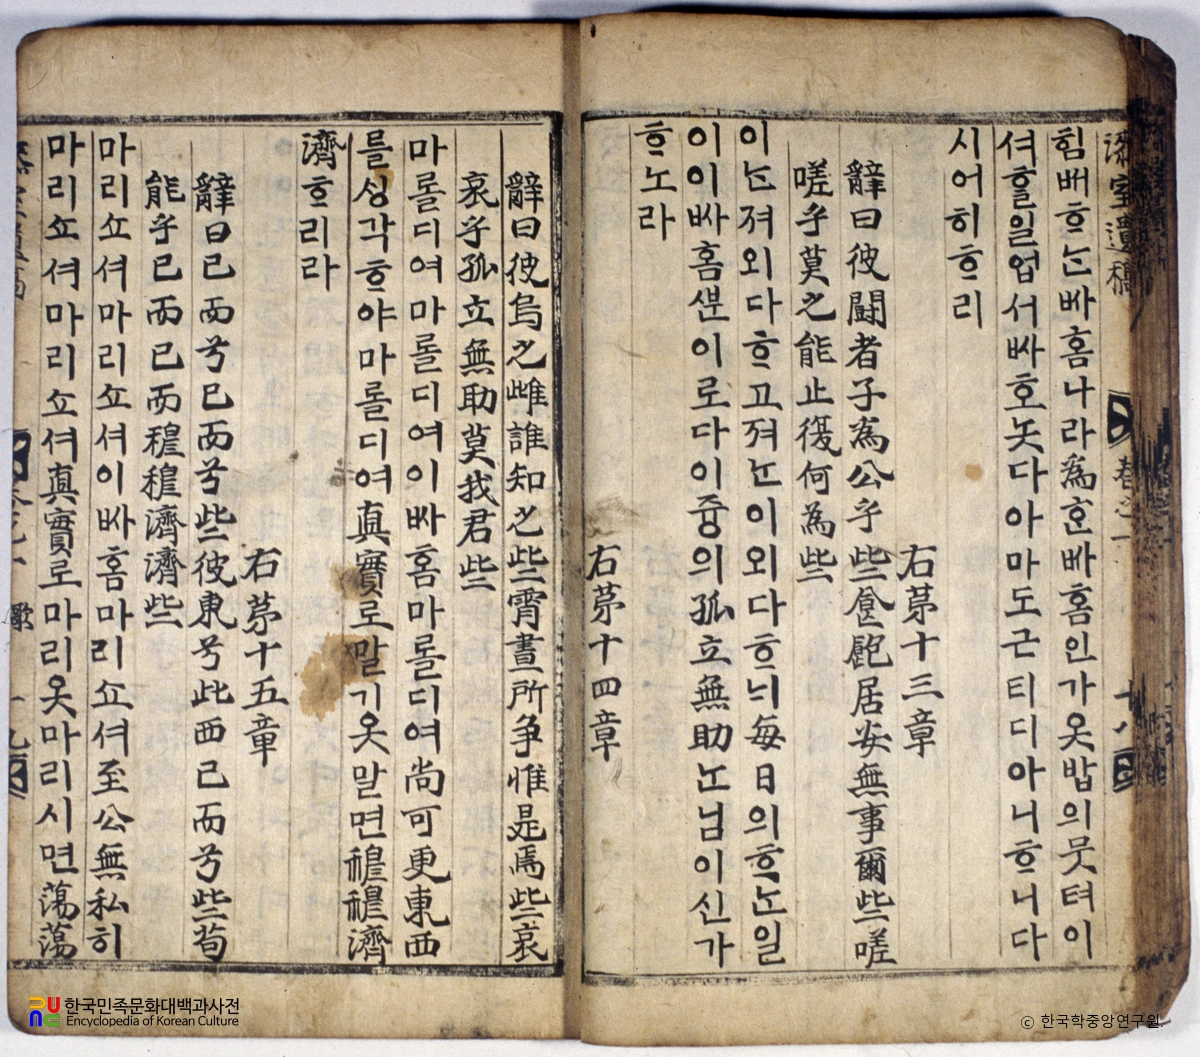 漆室遺稿 卷之一 十八
힘ᄡᅥᄒᆞᄂᆞᆫᄡᅡ홈나라爲ᄒᆞᆫᄡᅡ홈인가옷밥의뭇텨이
셔ᄒᆞᆯ일업서ᄡᅡ호놋다아마도근티디아니ᄒᆞ니다
시어히ᄒᆞ리
右茅十三章
辭曰彼鬪者子爲公乎些食飽居安無事爾些嗟
嗟乎莫之能止復何爲些
이ᄂᆞᆫ져외다ᄒᆞ고져ᄂᆞᆫ이외다ᄒᆞ늬每日의ᄒᆞᄂᆞᆫ일
이이ᄡᅡ홈ᄲᅮᆫ이로다이즁의孤立無助ᄂᆞᆫ님이신가
ᄒᆞ노라
右茅十四章
辭曰彼烏之雌誰知之些霄晝所争惟是焉些哀
哀乎孤立無助莫我君些
마롤디여마롤디여이ᄡᅡ홈마롤디여尚可更東西
를싱각ᄒᆞ야마롤디여真實로말기옷말면穆穆濟
濟ᄒᆞ리라
右茅十五章
辭曰已而兮已而兮些彼東兮此西已而兮些苟
能乎已而已而穆穆濟濟些
마리쇼셔마리쇼셔이ᄡᅡ홈마리쇼셔至公無私히
마리쇼셔마리쇼셔真實로마리옷마리시면蕩蕩
한국민족문화대백과사전
Encyclopedia of Korean Culture
ⓒ 한국학중앙연구원